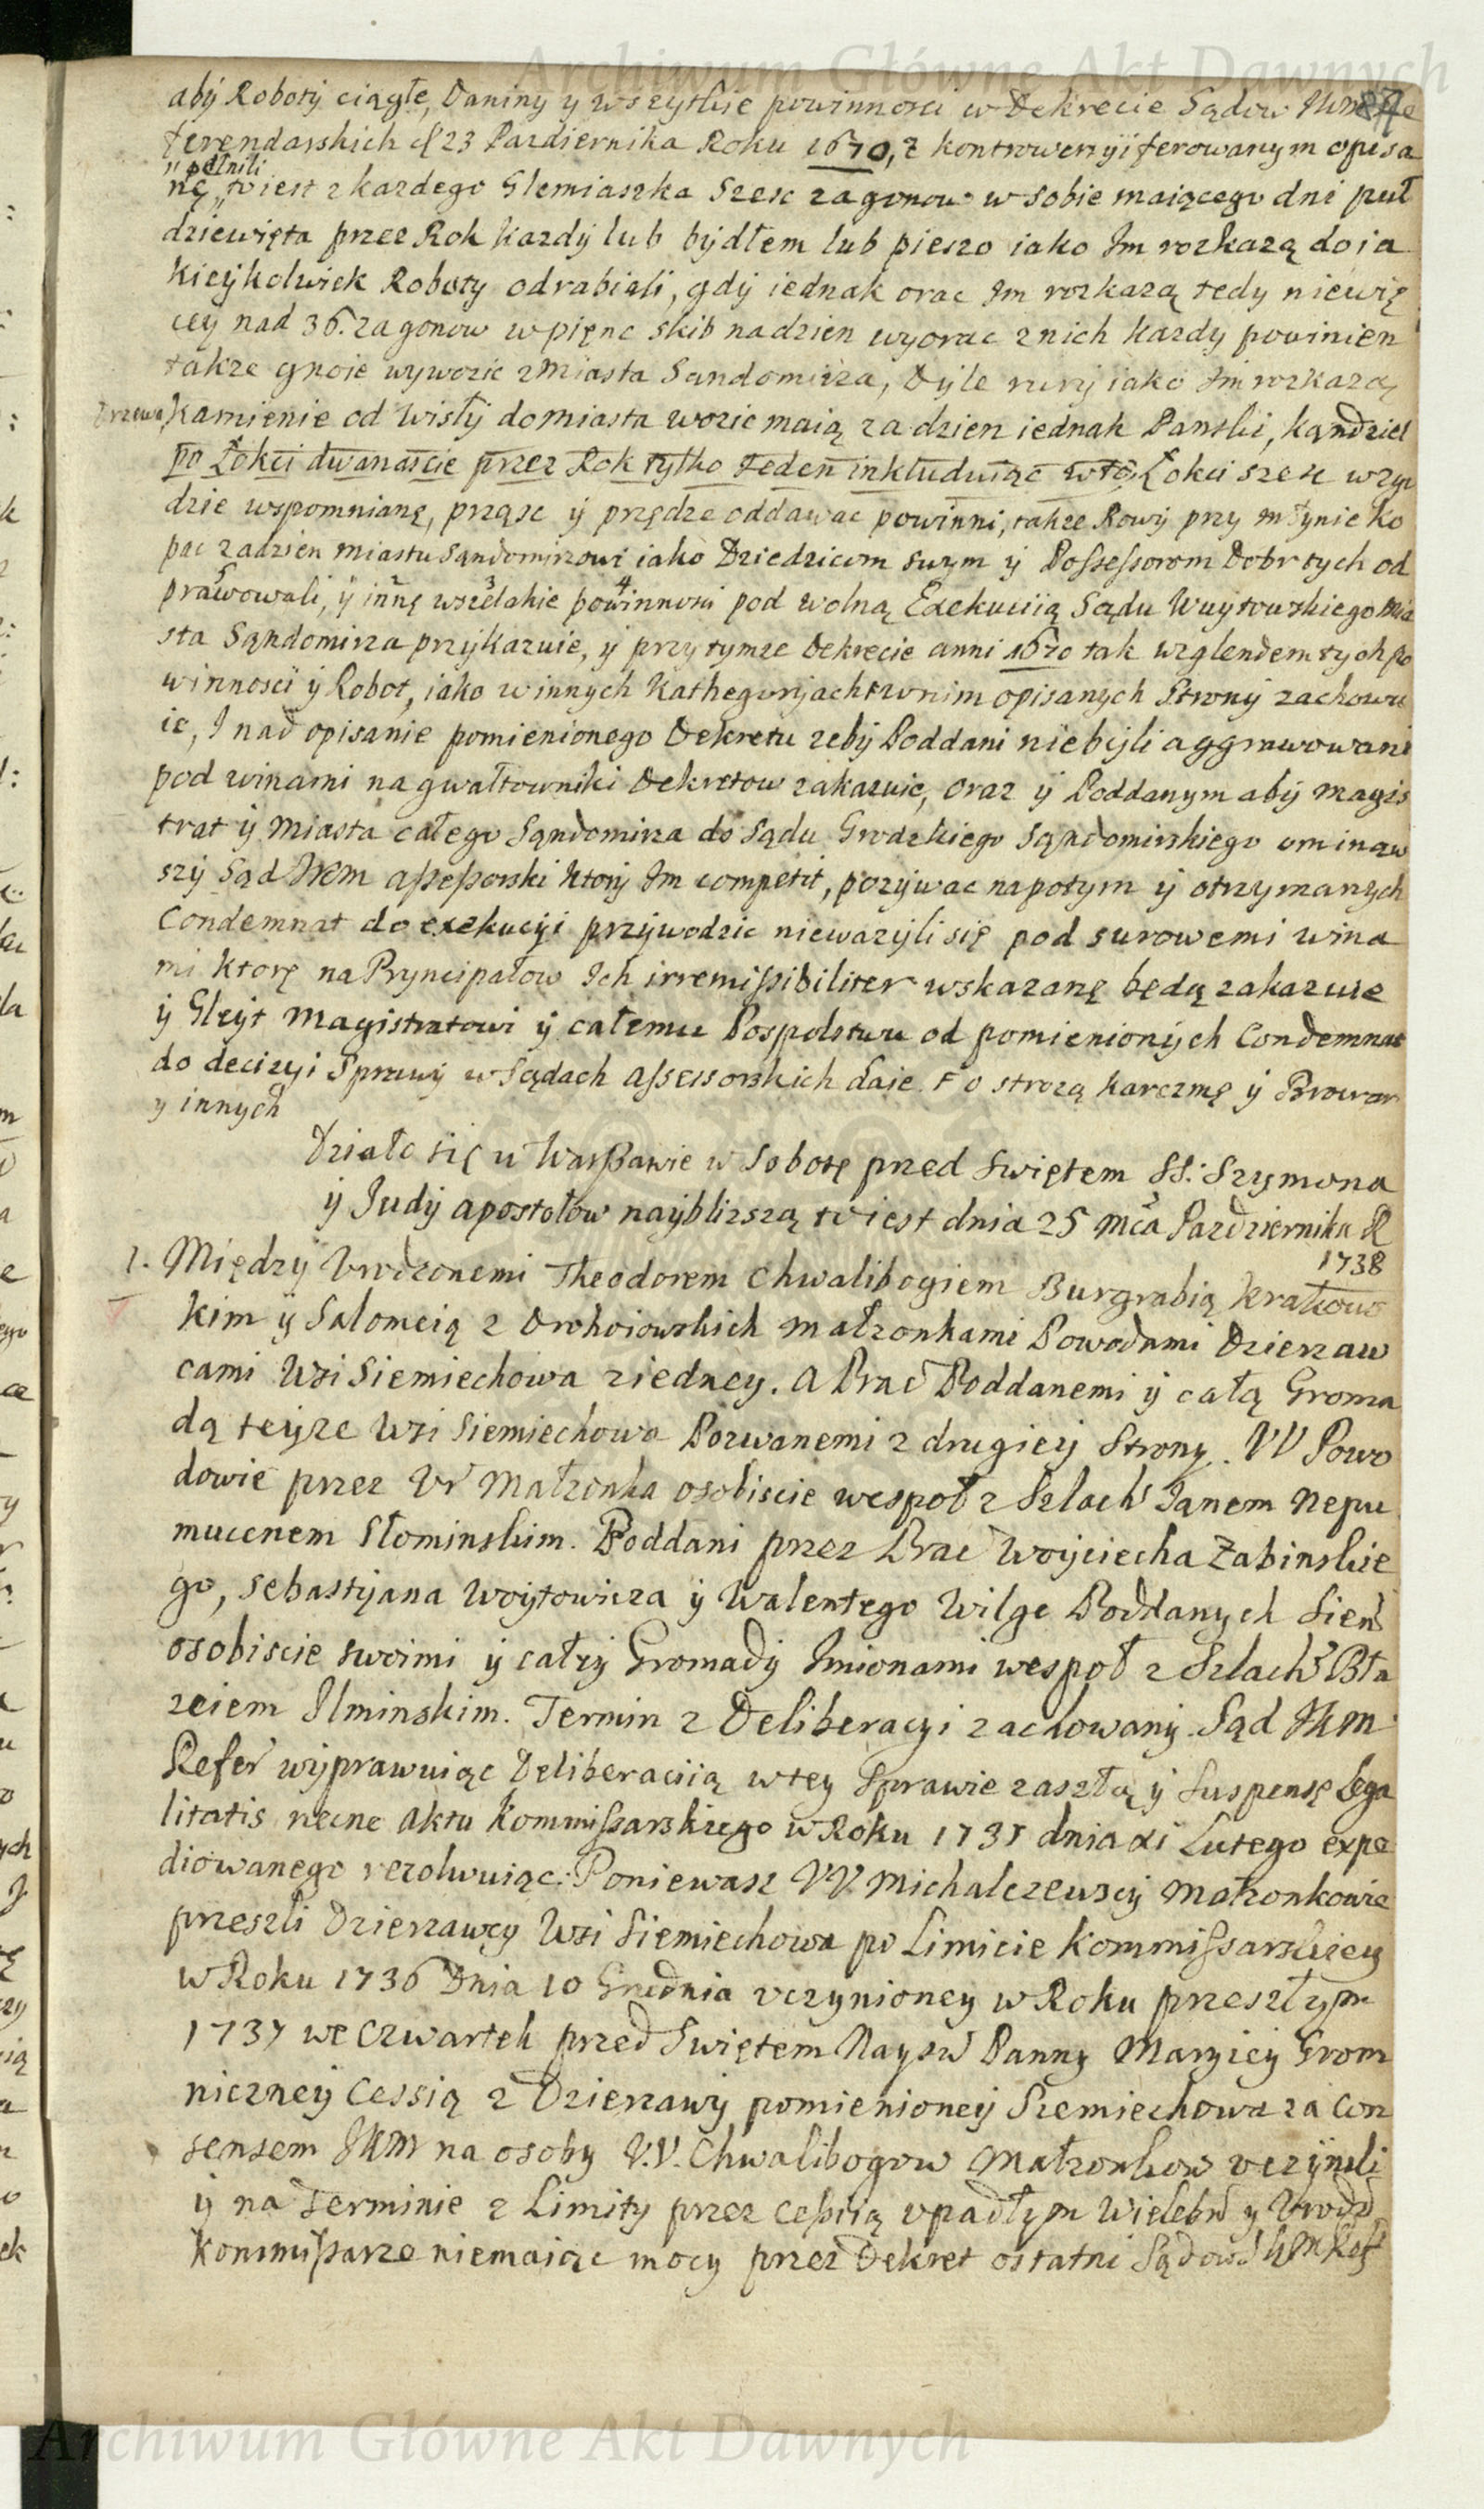 Archiwum Główne Akt Dawnych
87
abÿ Robotÿ ciągłe, Daniny y wszytkie powinnosci w Dekrecie Sądow JKM Re
ferendarskich d 23 Pazdiernika Roku 1670, z kontrowersyi ferowanym opisa
" pełnili
nę, to iest z kazdego Slemiaszka szesc zagonow w sobie maiącego dni puł
dziewięta przez Rok kazdÿ lub bÿdłem lub pieszo iako Im rozkazą do ia
kieÿkolwiek Roboty odrabiali, gdÿ iednak orac Im rozkazą tedy niewię
cey nad 36. zagonow w pięnc skib na dzien wyorac z nich kazdy powinien
takze gnoie wywozic z Miasta Sandomirza, Dyle rury iako Im rozkazą
Drzewa, Kamienie od Wisłÿ do miasta wozic maią za dzien iednak Panski, kąndziel
po Łokci dwanascie przez Rok tylko Jeden inkluduiąc w tę Łokci szesc wzyw
dzie wspomnianę, prząsc ÿ przędze oddawac powinni, takze Rowÿ przy młynie ko
pac za dzien miastu Sandomirzowi iako Dziedzicom swym ÿ Possessorom Dobr tych od
prawowali, ÿ innę wszelakie powinnosci pod wolną Exekuciią Sądu Wuytowskiego Mia
sta Sąndomirza przÿkazuie, ÿ przy tymze Dekrecie anni 1670 tak wzglendem tych po
winnoscÿ ÿ Robot, iako w innych Kathegoryjach w nim opisanych Stronÿ zachowu
ie, I nad opisanie pomienionego Dekretu zebÿ Poddani niebÿli aggrawowani
pod winami na gwałtowniki Dekretow zakazuie, oraz ÿ Poddanym abÿ Magis
trat ÿ Miasta całego Sąndomirza do Sądu Grodzkiego Sąndomirskiego ominąw
szÿ Sąd JKM assessorski ktorÿ Im competit, pozÿwac napotym ÿ otrzymanych
Condemnat do exekucÿi przÿwodzic niewazÿli się pod surowemi wina
mi ktorę na Pryncipałow Ich irremissibiliter wskazanę będą zakazuie
ÿ Gleÿt Magistratowi ÿ całemu Pospolstwu od pomienionÿch Condemnat
do decizyi Sprawÿ w Sądach Assessorskich daie. F o strozą karczmę ÿ Browar
y innych
Działo się w Warszawie w Sobotę przed Swiętem SS: Szymona
ÿ Judÿ apostołow nayblizszą to iest dnia 25 Mca Pazdziernika R
1738
1. Międzÿ Urodzonemi Theodorem Chwalibogiem Burgrabią krakows
kim ÿ Salomeią z Drohoiowskich małzonkami Powodami Dzierzaw
cami Wsi Siemiechowa z iedney. A Prac Poddanemi ÿ całą Groma
dą teÿze Wsi Siemiechowa Pozwanemi z drugieÿ Strony. UU Powo
dowie przez Ur Małzonka osobiscie wespoł z Szlach Janem Nepu
mucenem Słominskim. Poddani przez Prac Woÿciecha Zabinskie
go, Sebastÿana Woÿtowicza ÿ Walentego Wilge Poddanych Siem
osobiscie swoimi ÿ całeÿ Gromadÿ Imionami wespoł z Szlach Bła
zeiem Ilminskim. Termin z Deliberacyi zachowanÿ. Sąd JKM
Refer wÿprawuiąc Deliberaciią w tey Sprawie zaszłą ÿ Suspensę Lega
litatis necne Aktu Kommissarskiego w Roku 1737 dnia XI Lutego expe
diowanego rezolwuiąc: Poniewasz UU Michalczewscÿ Małzonkowie
przeszli Dzierzawcy Wsi Siemiechowa po Limicie Kommissarskiey
w Roku 1736 Dnia 10 Grudnia uczynioney w Roku przeszłym
1737 we Czwartek przed Swiętem Naysw Panny Maryiey Grom
niczneÿ Cessią z Dzierzawÿ pomienioneÿ Siemiechowa za Con
sensem JKM na osoby U.U. Chwalibogow Małzonkow uczÿnili
ÿ na Terminie z Limity przez Cessiią upadłym Wielebn y Urodd
Kommissarze niemaiąc mocy przez Dekret ostatni Sądow JKM Ref
Archiwum Główne Akt Dawnych